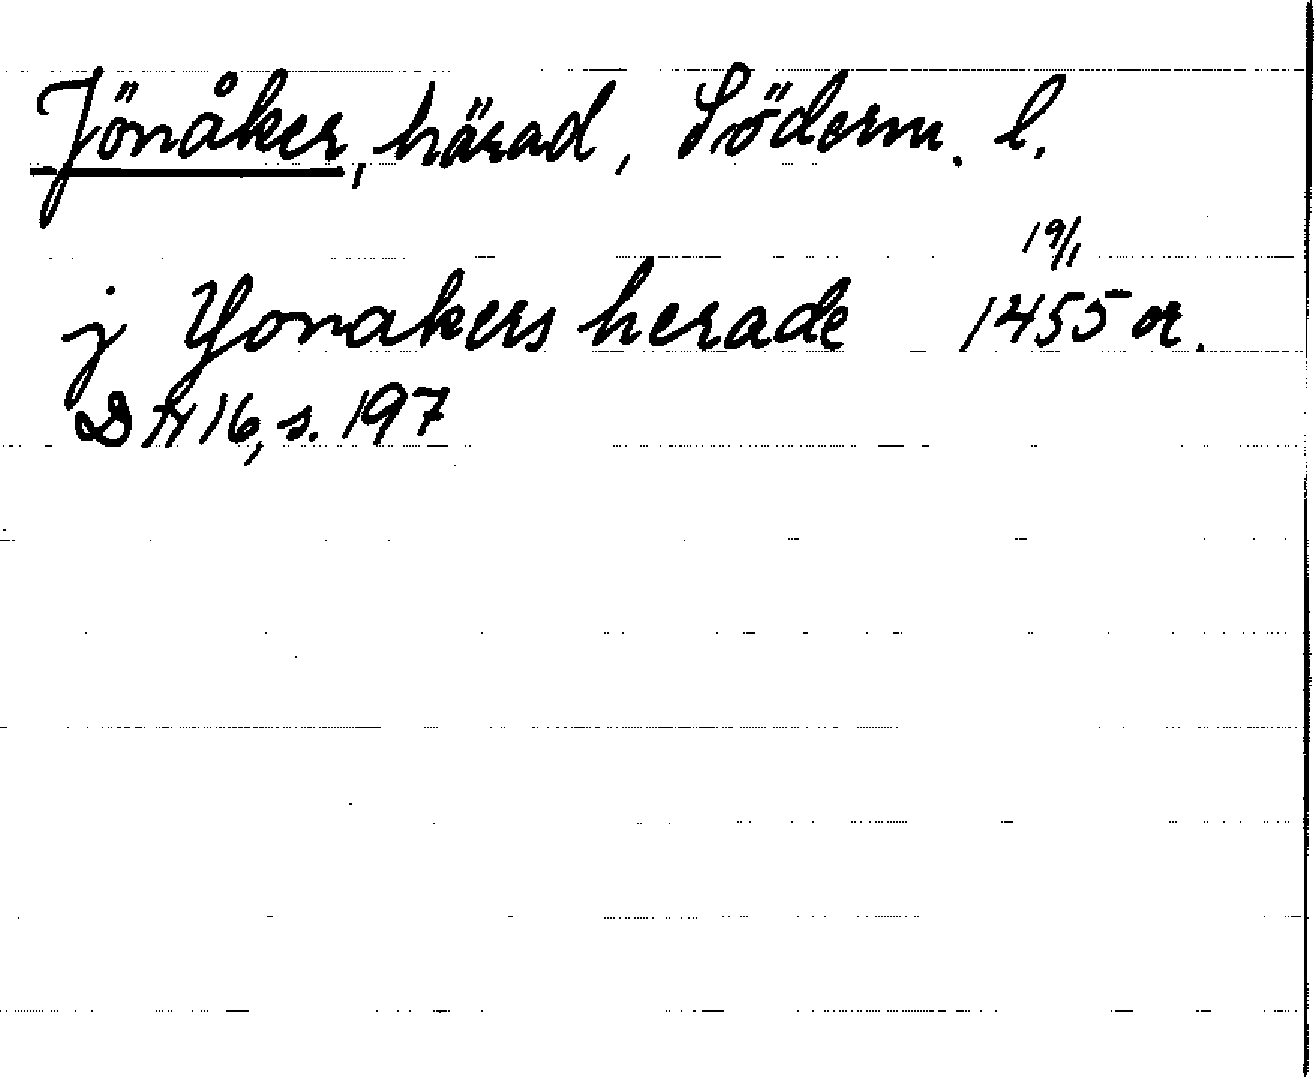 Jönåker, härad, Söderm. l.
19/1
j Yonakers herade 1455 or.
DN 16, s. 197